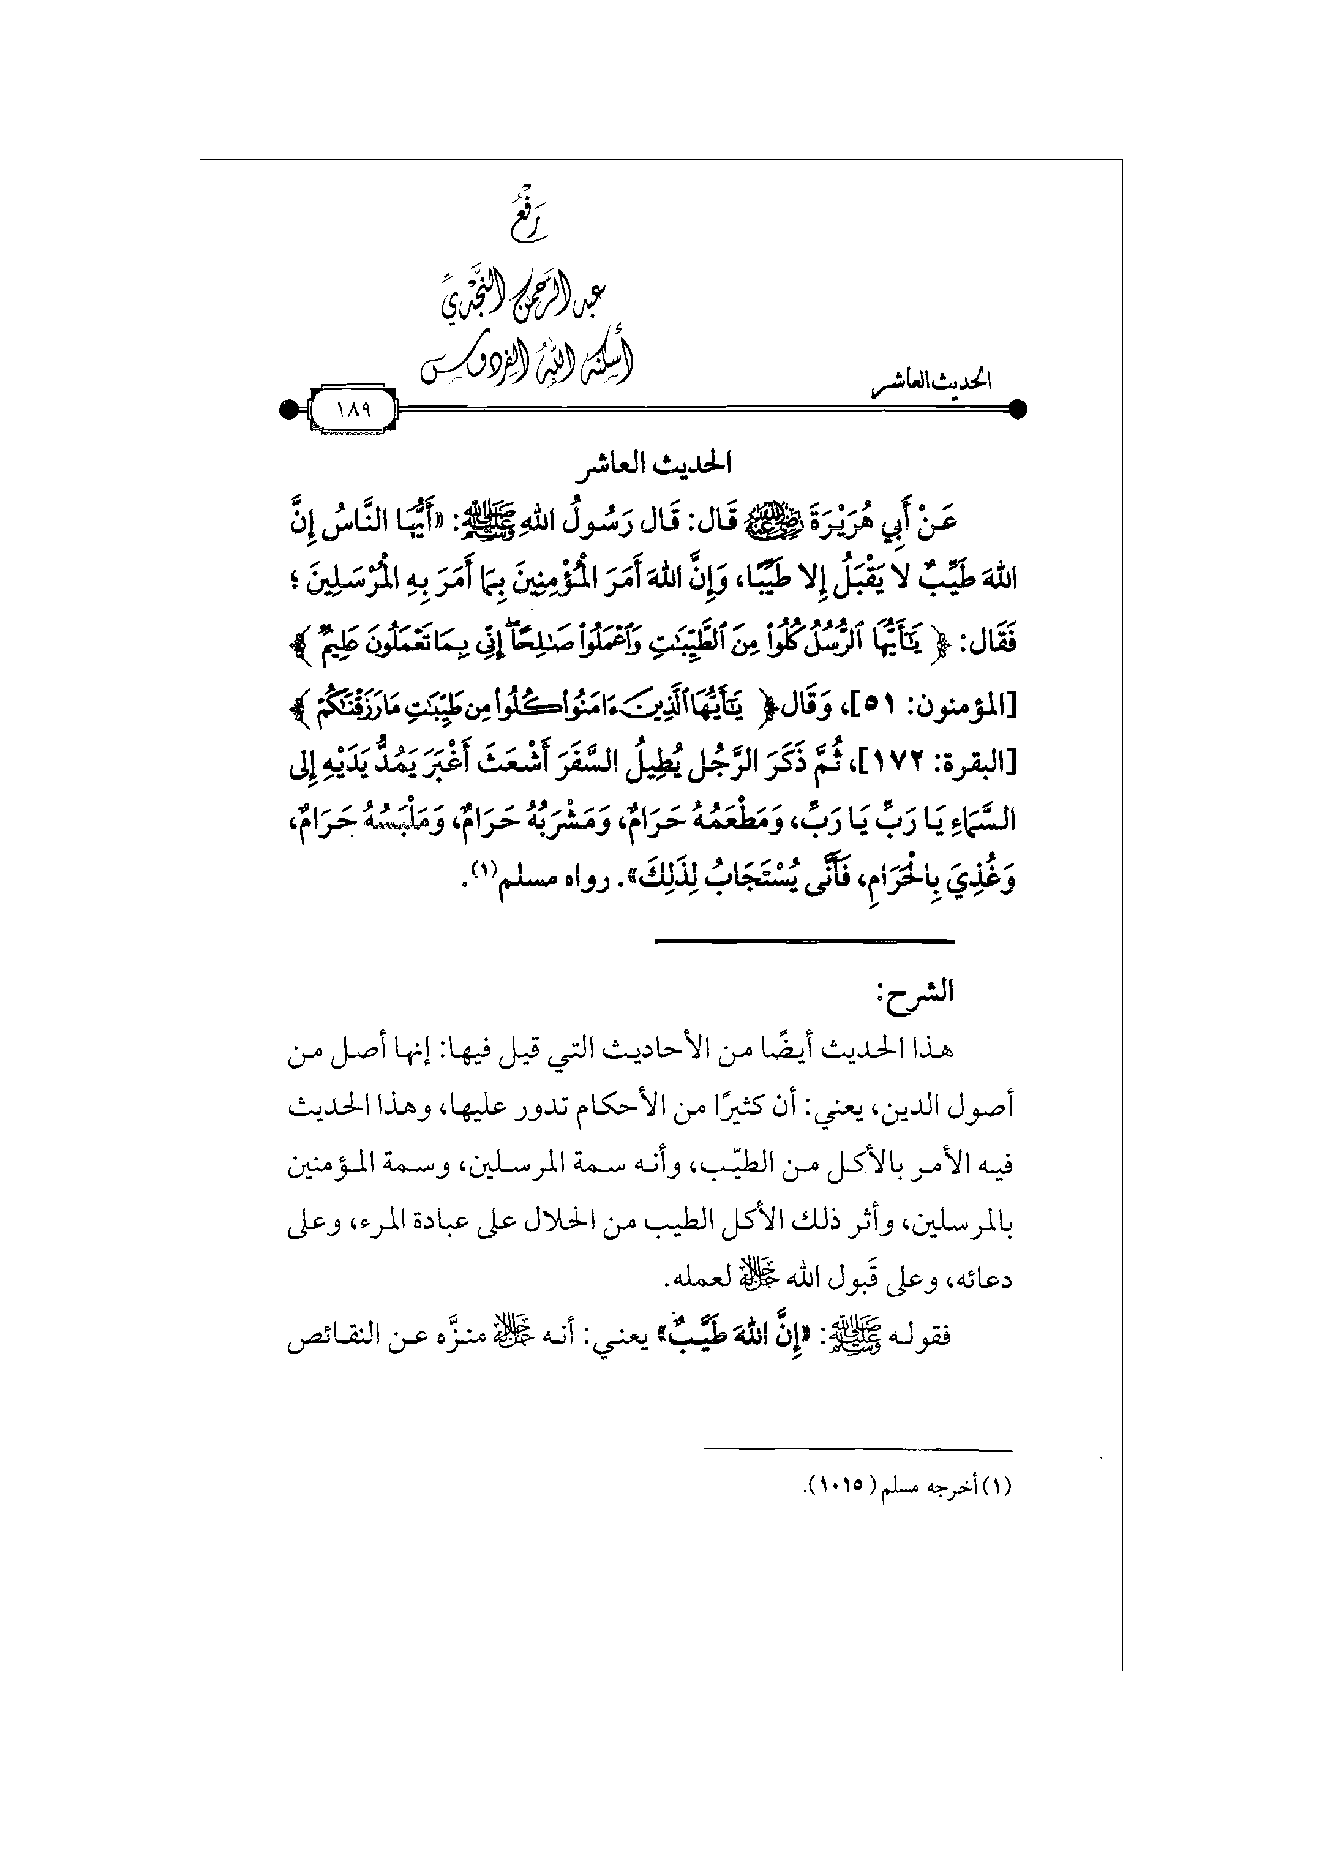 رَفْعُ
عبد الرحمن النجدي
أسكنه الله الفردوس
الحديث العاشر
١٨٩
الحديث العاشر
عَنْ أَبِي هُرَيْرَةَ رضي الله عنه قَال: قَال رَسُولُ اللهِ ﷺ: «أَيُّهَا النَّاسُ إِنَّ
اللهَ طَيِّبٌ لا يَقْبَلُ إِلا طَيِّبًا، وَإِنَّ اللهَ أَمَرَ الْمُؤْمِنِينَ بِمَا أَمَرَ بِهِ الْمُرْسَلِينَ ؛
فَقَال: ﴿ يَٰٓأَيُّهَا ٱلرُّسُلُ كُلُوا۟ مِنَ ٱلطَّيِّبَٰتِ وَٱعْمَلُوا۟ صَٰلِحًا ۖ إِنِّى بِمَا تَعْمَلُونَ عَلِيمٌ ﴾
[المؤمنون: ٥١]، وَقَال ﴿ يَٰٓأَيُّهَا ٱلَّذِينَ ءَامَنُوا۟ كُلُوا۟ مِن طَيِّبَٰتِ مَا رَزَقْنَٰكُمْ ﴾
[البقرة: ١٧٢]، ثُمَّ ذَكَرَ الرَّجُل يُطِيلُ السَّفَرَ أَشْعَثَ أَغْبَرَ يَمُدُّ يَدَيْهِ إِلى
السَّمَاءِ يَا رَبِّ يَا رَبِّ، وَمَطْعَمُهُ حَرَامٌ، وَمَشْرَبُهُ حَرَامٌ، وَمَلْبَسُهُ حَرَامٌ،
وَغُذِيَ بِالْحَرَامِ، فَأَنَّى يُسْتَجَابُ لِذَلِكَ». رواه مسلم(١).
الشرح:
هذا الحديث أيضًا من الأحاديث التي قيل فيها: إنها أصل من
أصول الدين، يعني: أن كثيرًا من الأحكام تدور عليها، وهذا الحديث
فيه الأمر بالأكل من الطيّب، وأنه سمة المرسلين، وسمة المؤمنين
بالمرسلين، وأثر ذلك الأكل الطيب من الحلال على عبادة المرء، وعلى
دعائه، وعلى قَبول الله ﷻ لعمله.
فقوله ﷺ: «إِنَّ اللهَ طَيِّبٌ» يعني: أنه ﷻ منزَّه عن النقائص
(١) أخرجه مسلم (١٠١٥).